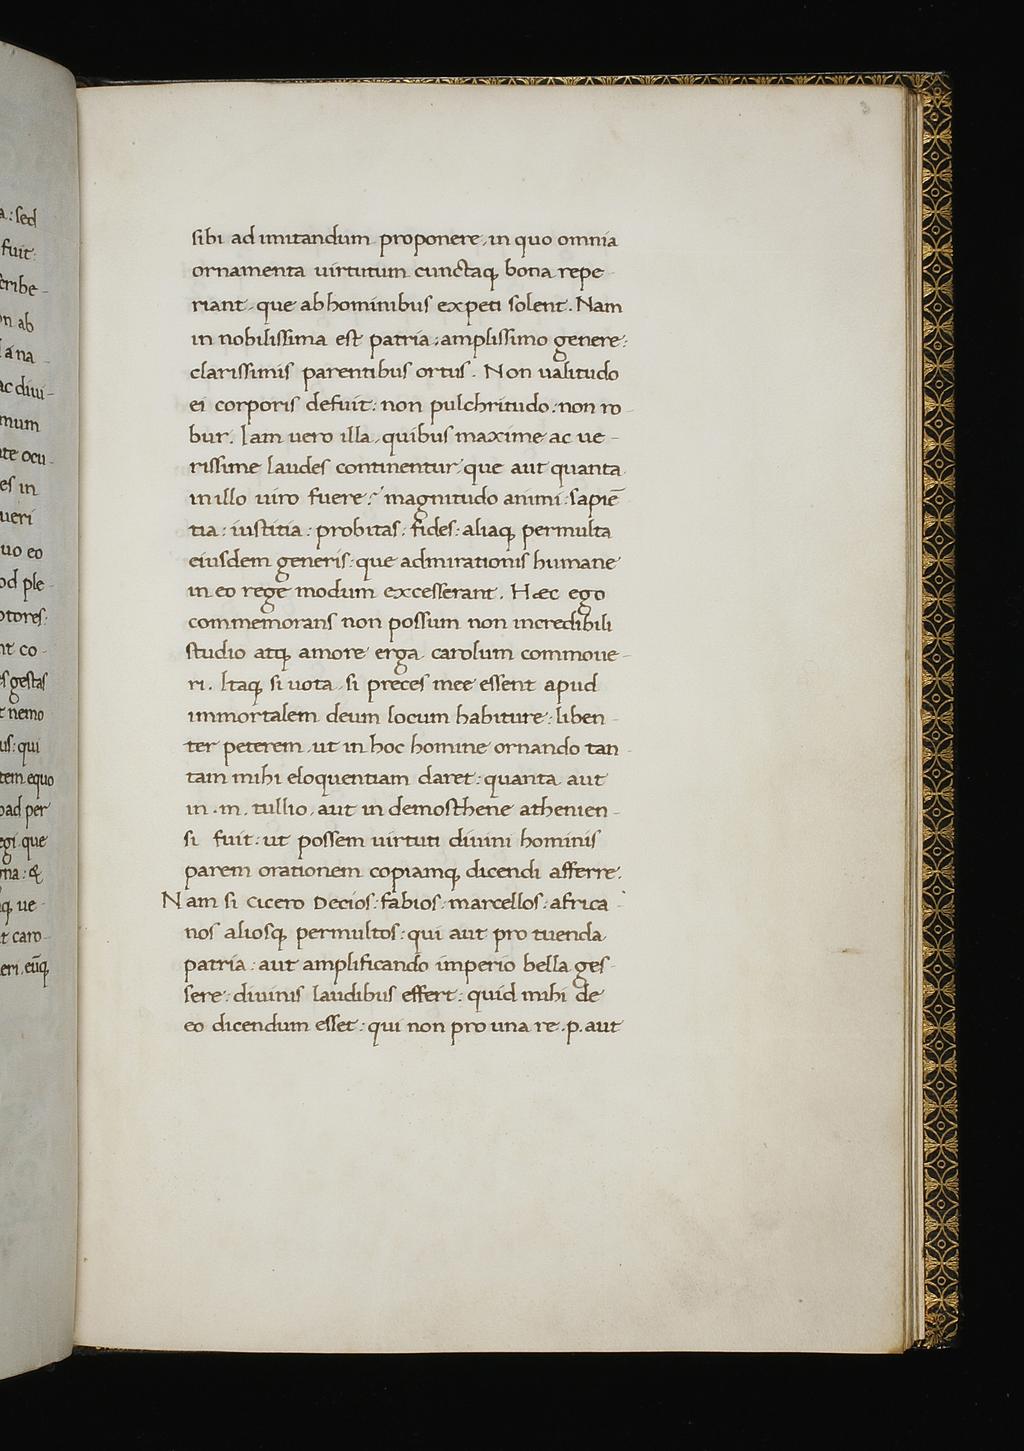 a : sed
fuit :
cribe -
n ab
l ana
ac diui -
mum
ate ocu
es in
ueri
uo eo
od ple
ptores :
nt co -
s gestas
t nemo
us : qui
tem equo
ad per
egi que
na : &
q, ue
t caro
eri . eūq,
3
sibi ad imitandum proponere , in quo omnia
ornamenta uirtutum cunctaq, bona repe -
riant , que ab hominibus expeti solent . Nam
in nobilissima est patria : amplissimo genere :
clarissimis parentibus ortus . Non ualitudo
ei corporis defuit : non pulchritudo : non ro -
bur . Iam uero illa , quibus maxime ac ue -
rissime laudes continentur que aut quanta
in illo uiro fuere : magnitudo animi : sapiē
tia : iustitia : probitas : fides : aliaq, permulta
eiusdem generis : que admirationis humane
in eo rege modum excesserant . Hæc ego
commemorans non possum non incredibili
studio atq, amore erga carolum commoue -
ri . Itaq, si uota , si preces mee essent apud
immortalem deum locum habiture : liben -
ter peterem , ut in hoc homine ornando tan -
tam mihi eloquentiam daret : quanta aut
in . m . tullio , aut in demosthene athenien -
si fuit : ut possem uirtuti diuini hominis
parem orationem copiamq, dicendi afferre .
Nam si cicero Decios : fabios : marcellos : africa -
nos aliosq, permultos : qui aut pro tuenda
patria : aut amplificando imperio bella ges -
sere : diuinis laudibus effert : quid mihi de
eo dicendum esset : qui non pro una re . p . aut